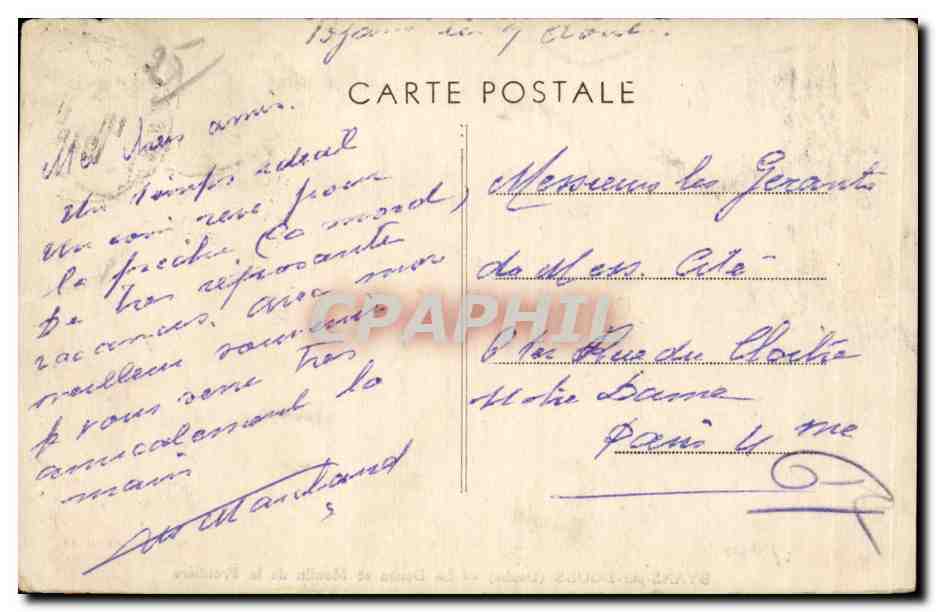 Byans le 7 Aout.
25
CARTE POSTALE
Mes chers amis.
Un temps ideal
Un coin revé pour
la peche (ça mord)
De tres reposante
vacances. avec mon
meilleur souvenir
je vous serre tres
amicalement la
main
Marchand
Messieurs les Gerants
du Mess. Cité
Rue du Cloitre
Notre Dame
Paris 4me
CPAPHIL
BYANS-sur-DOUBS (Doubs) - Le Doubs et Moulin de la Froidière